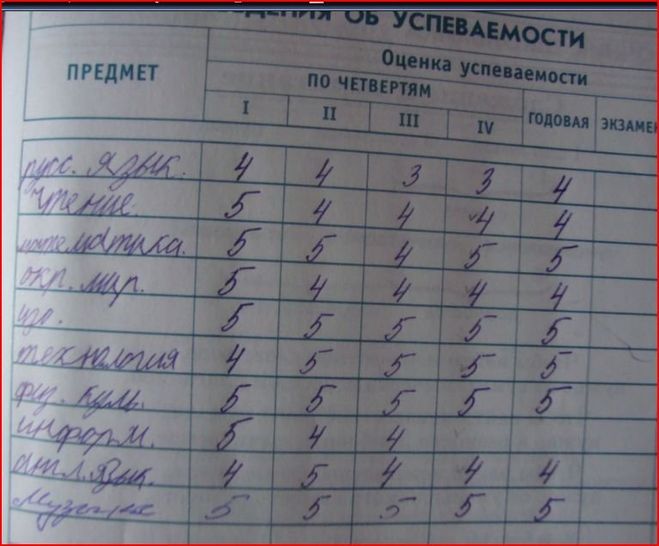 ВЕДЕНИЯ ОБ УСПЕВАЕМОСТИ
ПРЕДМЕТ
Оценка успеваемости
ПО ЧЕТВЕРТЯМ
ГОДОВАЯ ЭКЗАМЕН
I II III IV
русс. язык. 4 4 3 3 4
Чтение. 5 4 4 4 4
математика. 5 5 4 5 5
окр. мир. 5 4 4 4 4
изо. 5 5 5 5 5
технология 4 5 5 5 5
физ. куль. 5 5 5 5 5
информ. 5 4 4
англ. язык. 4 5 4 4 4
музыка 5 5 5 5 5